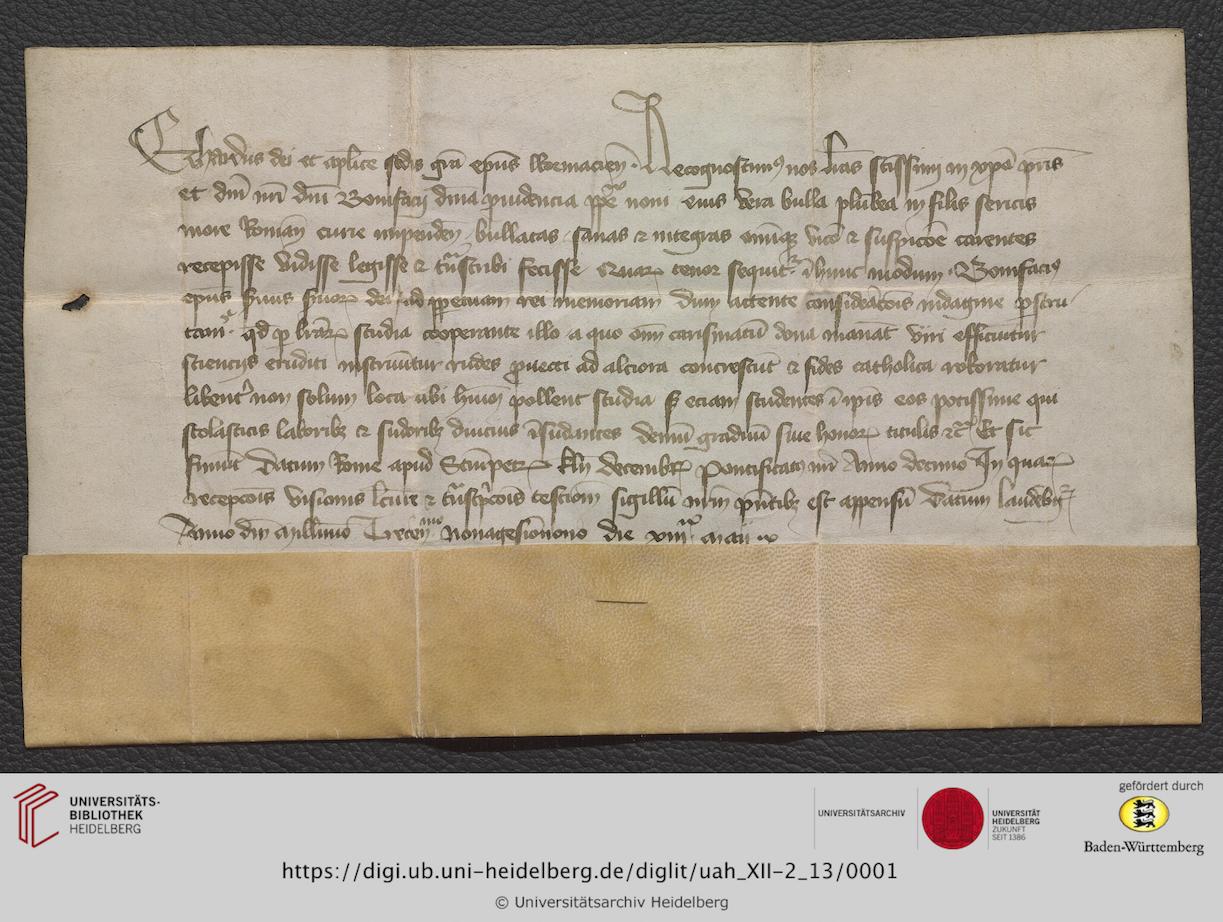 Eckardus dei et aplice sedis gra epus Wormacien. Recognoscimus nos lras sctissimi in xpo pris
et dni nri dni Bonifacij diuina prouidencia ppe noni eius vera bulla plumbea in filis sericis
more Romane curie impenden bullatas sanas et integras omnique vicio et suspicoe carentes
recepisse vidisse legisse et transcribi fecisse Quarum tenor sequitur in hunc modum. Bonifacius
epus seruus seruorum dei ad perpetuam rei memoriam Dum attente consideracois indagine perscru
tamur qd per lrarum studia cooperante illo a quo omni carismatum dona manant viri efficiuntur
sciencijs eruditi instruuntur rudes prouecti ad alciora concrescunt et fides catholica roboratur
libenter non solum loca ubi huiusmodi pollent studia sed eciam studentes in ipis eos potissime qui
scolasticis laboribus et sudoribus diucius insudantes demum graduum siue honorum titulis etc Et sic
finiunt Datum Rome apud Sctumpetrum kln decembr Pontificatus nri Anno decimo In quarum
recepcois visionis lecture et transcripcois testiom sigillum nrm pntibus est appensum Datum laudebur
Anno dni millimo Trecen nonagesimonono die xiiij maij
UNIVERSITÄTS-
BIBLIOTHEK
HEIDELBERG
UNIVERSITÄTSARCHIV
UNIVERSITÄT
HEIDELBERG
ZUKUNFT
SEIT 1386
gefördert durch
Baden-Württemberg
https://digi.ub.uni-heidelberg.de/diglit/uah_XII-2_13/0001
© Universitätsarchiv Heidelberg